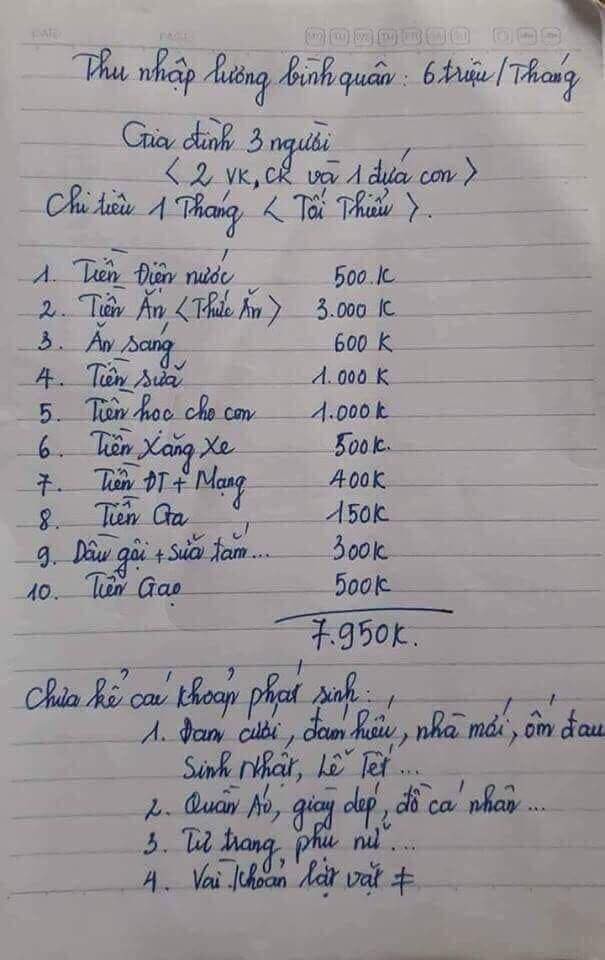 DATE PAGE MO TU WE TH FR SA SU
Thu nhập lương bình quân: 6 triệu / Tháng
Gia đình 3 người
< 2 VK, CK và 1 đứa con >
Chi tiêu 1 Tháng < Tối Thiểu > .
1. Tiền Điện nước 500.K
2. Tiền Ăn < Thức Ăn > 3.000 K
3. Ăn sáng 600 K
4. Tiền sữa 1.000 K
5. Tiền học cho con 1.000 K
6. Tiền Xăng Xe 500K.
7. Tiền ĐT + Mạng 400K
8. Tiền Ga 150K
9. Dầu gội + Sữa tắm... 300K
10. Tiền Gạo 500K
7.950K.
Chưa kể các khoản phát sinh:
1. Đám cưới, đám hiếu, nhà mới, ốm đau
Sinh Nhật, Lễ Tết ...
2. Quần Áo, giày dép, đồ cá nhân ...
3. Tư trang phụ nữ ...
4. Vài khoản lặt vặt ≠